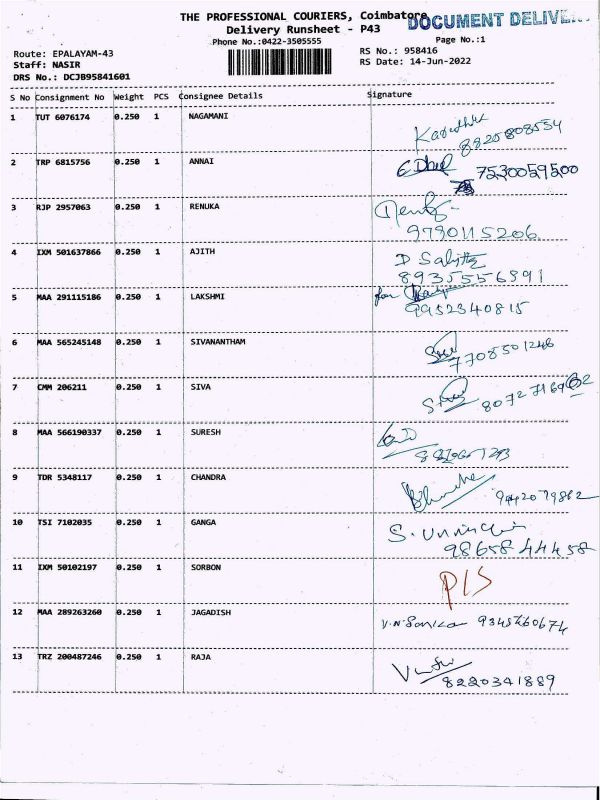 THE PROFESSIONAL COURIERS, Coimbatore
DOCUMENT DELIVE
Delivery Runsheet - P43
Phone No.:0422-3505555
Page No.:1
Route: EPALAYAM-43
RS No.: 958416
Staff: NASIR
RS Date: 14-Jun-2022
DRS No.: DCJB95841601
S No Consignment No Weight PCS Consignee Details Signature
1 TUT 6076174 0.250 1 NAGAMANI
8825808554
2 TRP 6815756 0.250 1 ANNAI
7530059500
3 RJP 2957063 0.250 1 RENUKA
9790115206
4 IXM 501637866 0.250 1 AJITH
D
8935556391
5 MAA 291115186 0.250 1 LAKSHMI
for
9952340815
6 MAA 565245148 0.250 1 SIVANANTHAM
7708501246
7 CMM 206211 0.250 1 SIVA
8 MAA 566190337 0.250 1 SURESH
9 TDR 5348117 0.250 1 CHANDRA
9442079862
10 TSI 7102035 0.250 1 GANGA
S.
98658 44458
11 IXM 50102197 0.250 1 SORBON
P/S
12 MAA 289263260 0.250 1 JAGADISH
V.N.
13 TRZ 200487246 0.250 1 RAJA
8220341889